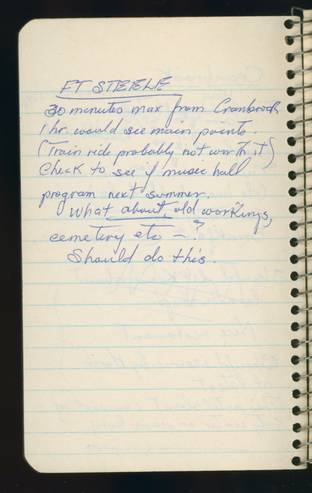 FT STEELE
30 minutes max from Cranbrook
1 hr would see main points.
(Train ride probably not worth it)
Check to see if music hall
program next summer.
What about old workings,
cemetery etc -?
Should do this.